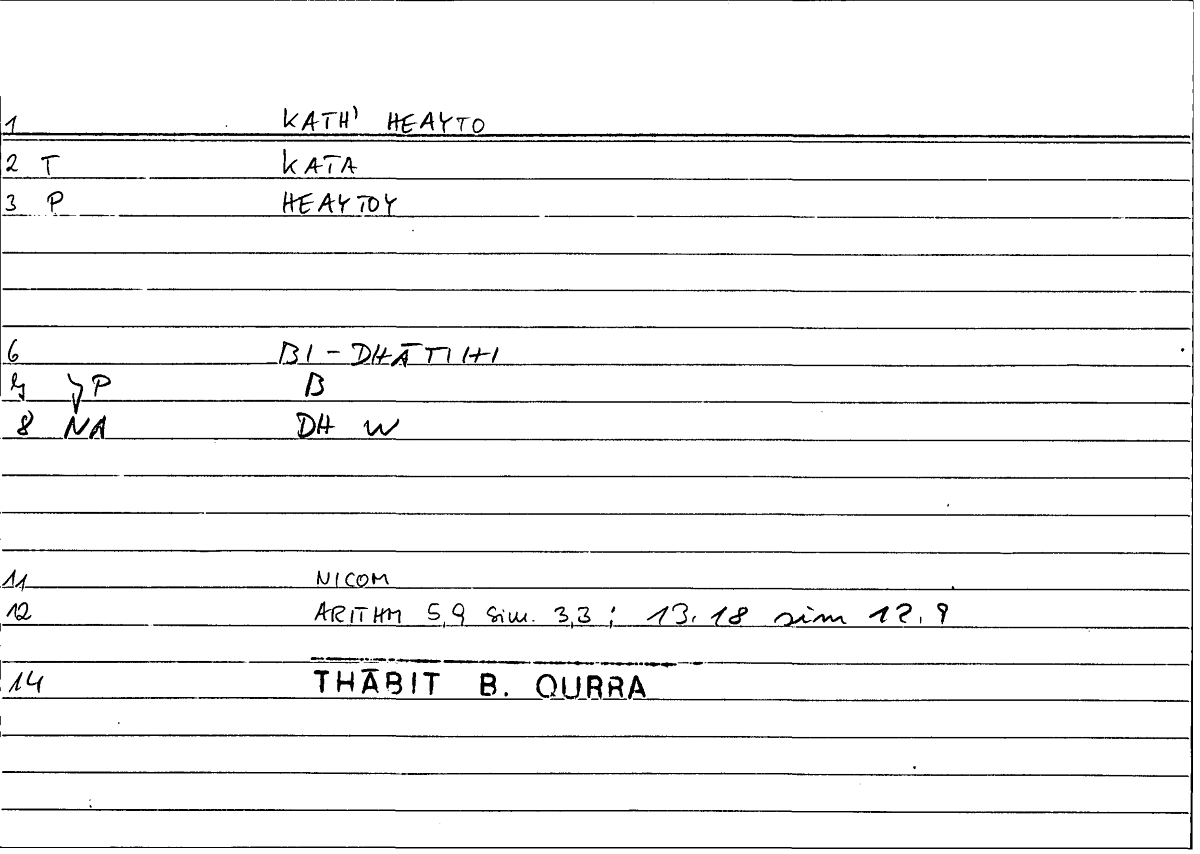 1 KATH' HEAYTO
2 T KATA
3 P HEAYTOY
6 BI-DHĀTIHI
P B
8 NA DH W
11 NICOM
12 ARITHM 5,9 sim. 3,3; 13.18 sim 12.9
14 THĀBIT B. QURRA